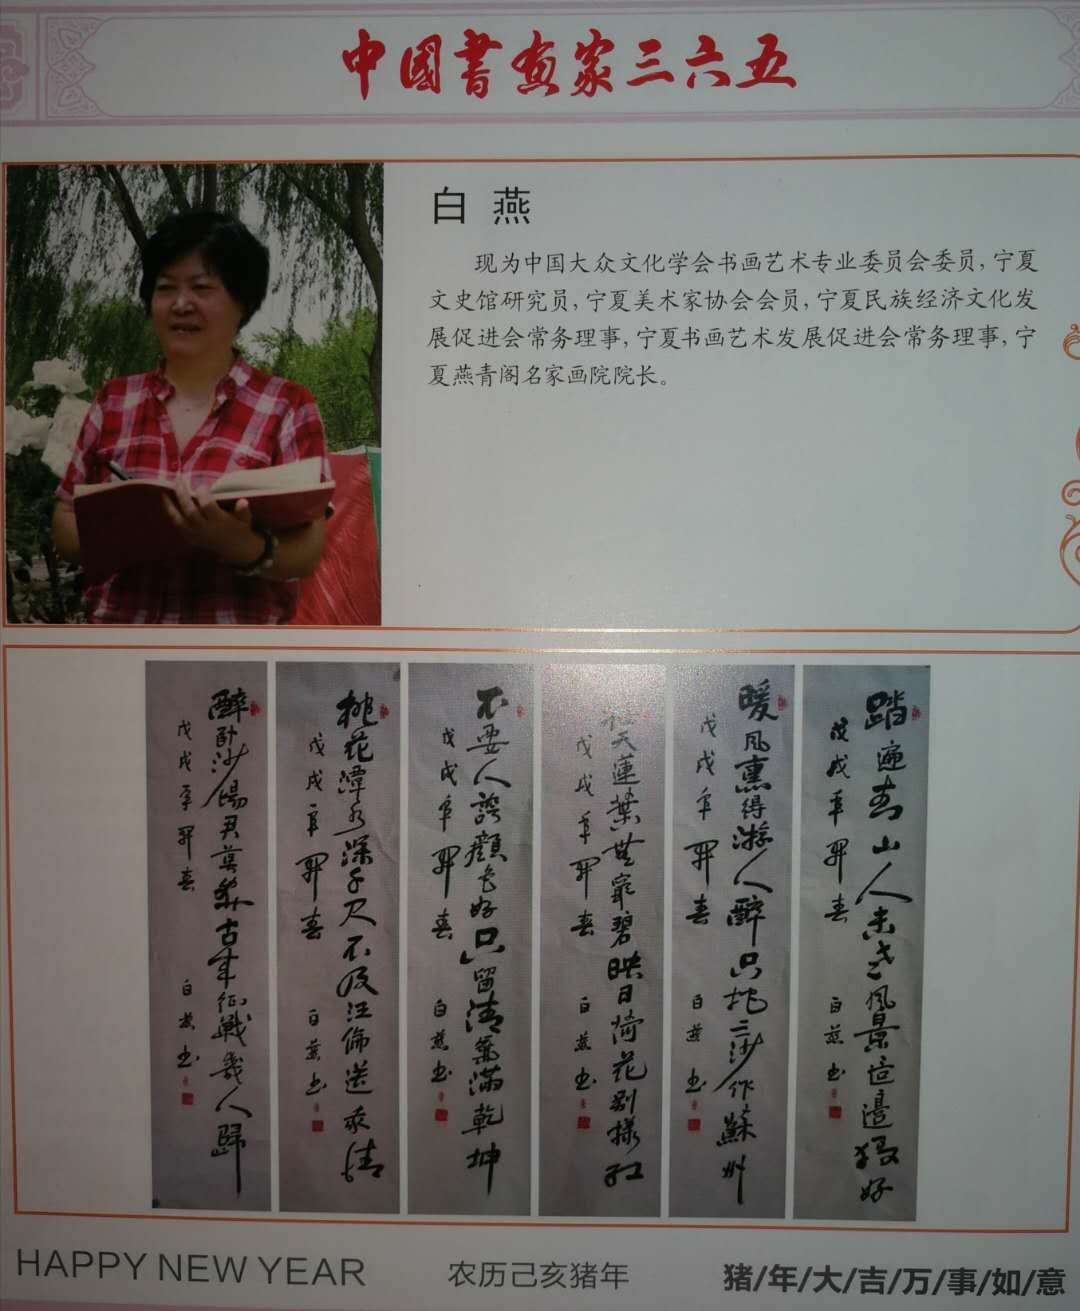 中國書畫家三六五
白 燕
现为中国大众文化学会书画艺术专业委员会委员,宁夏
文史馆研究员,宁夏美术家协会会员,宁夏民族经济文化发
展促进会常务理事,宁夏书画艺术发展促进会常务理事,宁
夏燕青阁名家画院院长。
踏遍青山人未老風景这邊独好
戊戌年春
白燕书
暖风熏得游人醉只把三沙作蘇州
戊戌年春
白燕书
接天蓮葉無窮碧映日荷花别樣红
戊戌年春
白燕书
不要人誇顏色好只留清氣滿乾坤
戊戌年春
白燕书
桃花潭水深千尺不及汪倫送我情
戊戌年春
白燕书
醉卧沙場君莫笑古来征戰幾人歸
戊戌年春
白燕书
HAPPY NEW YEAR
农历己亥猪年
猪/年/大/吉/万/事/如/意